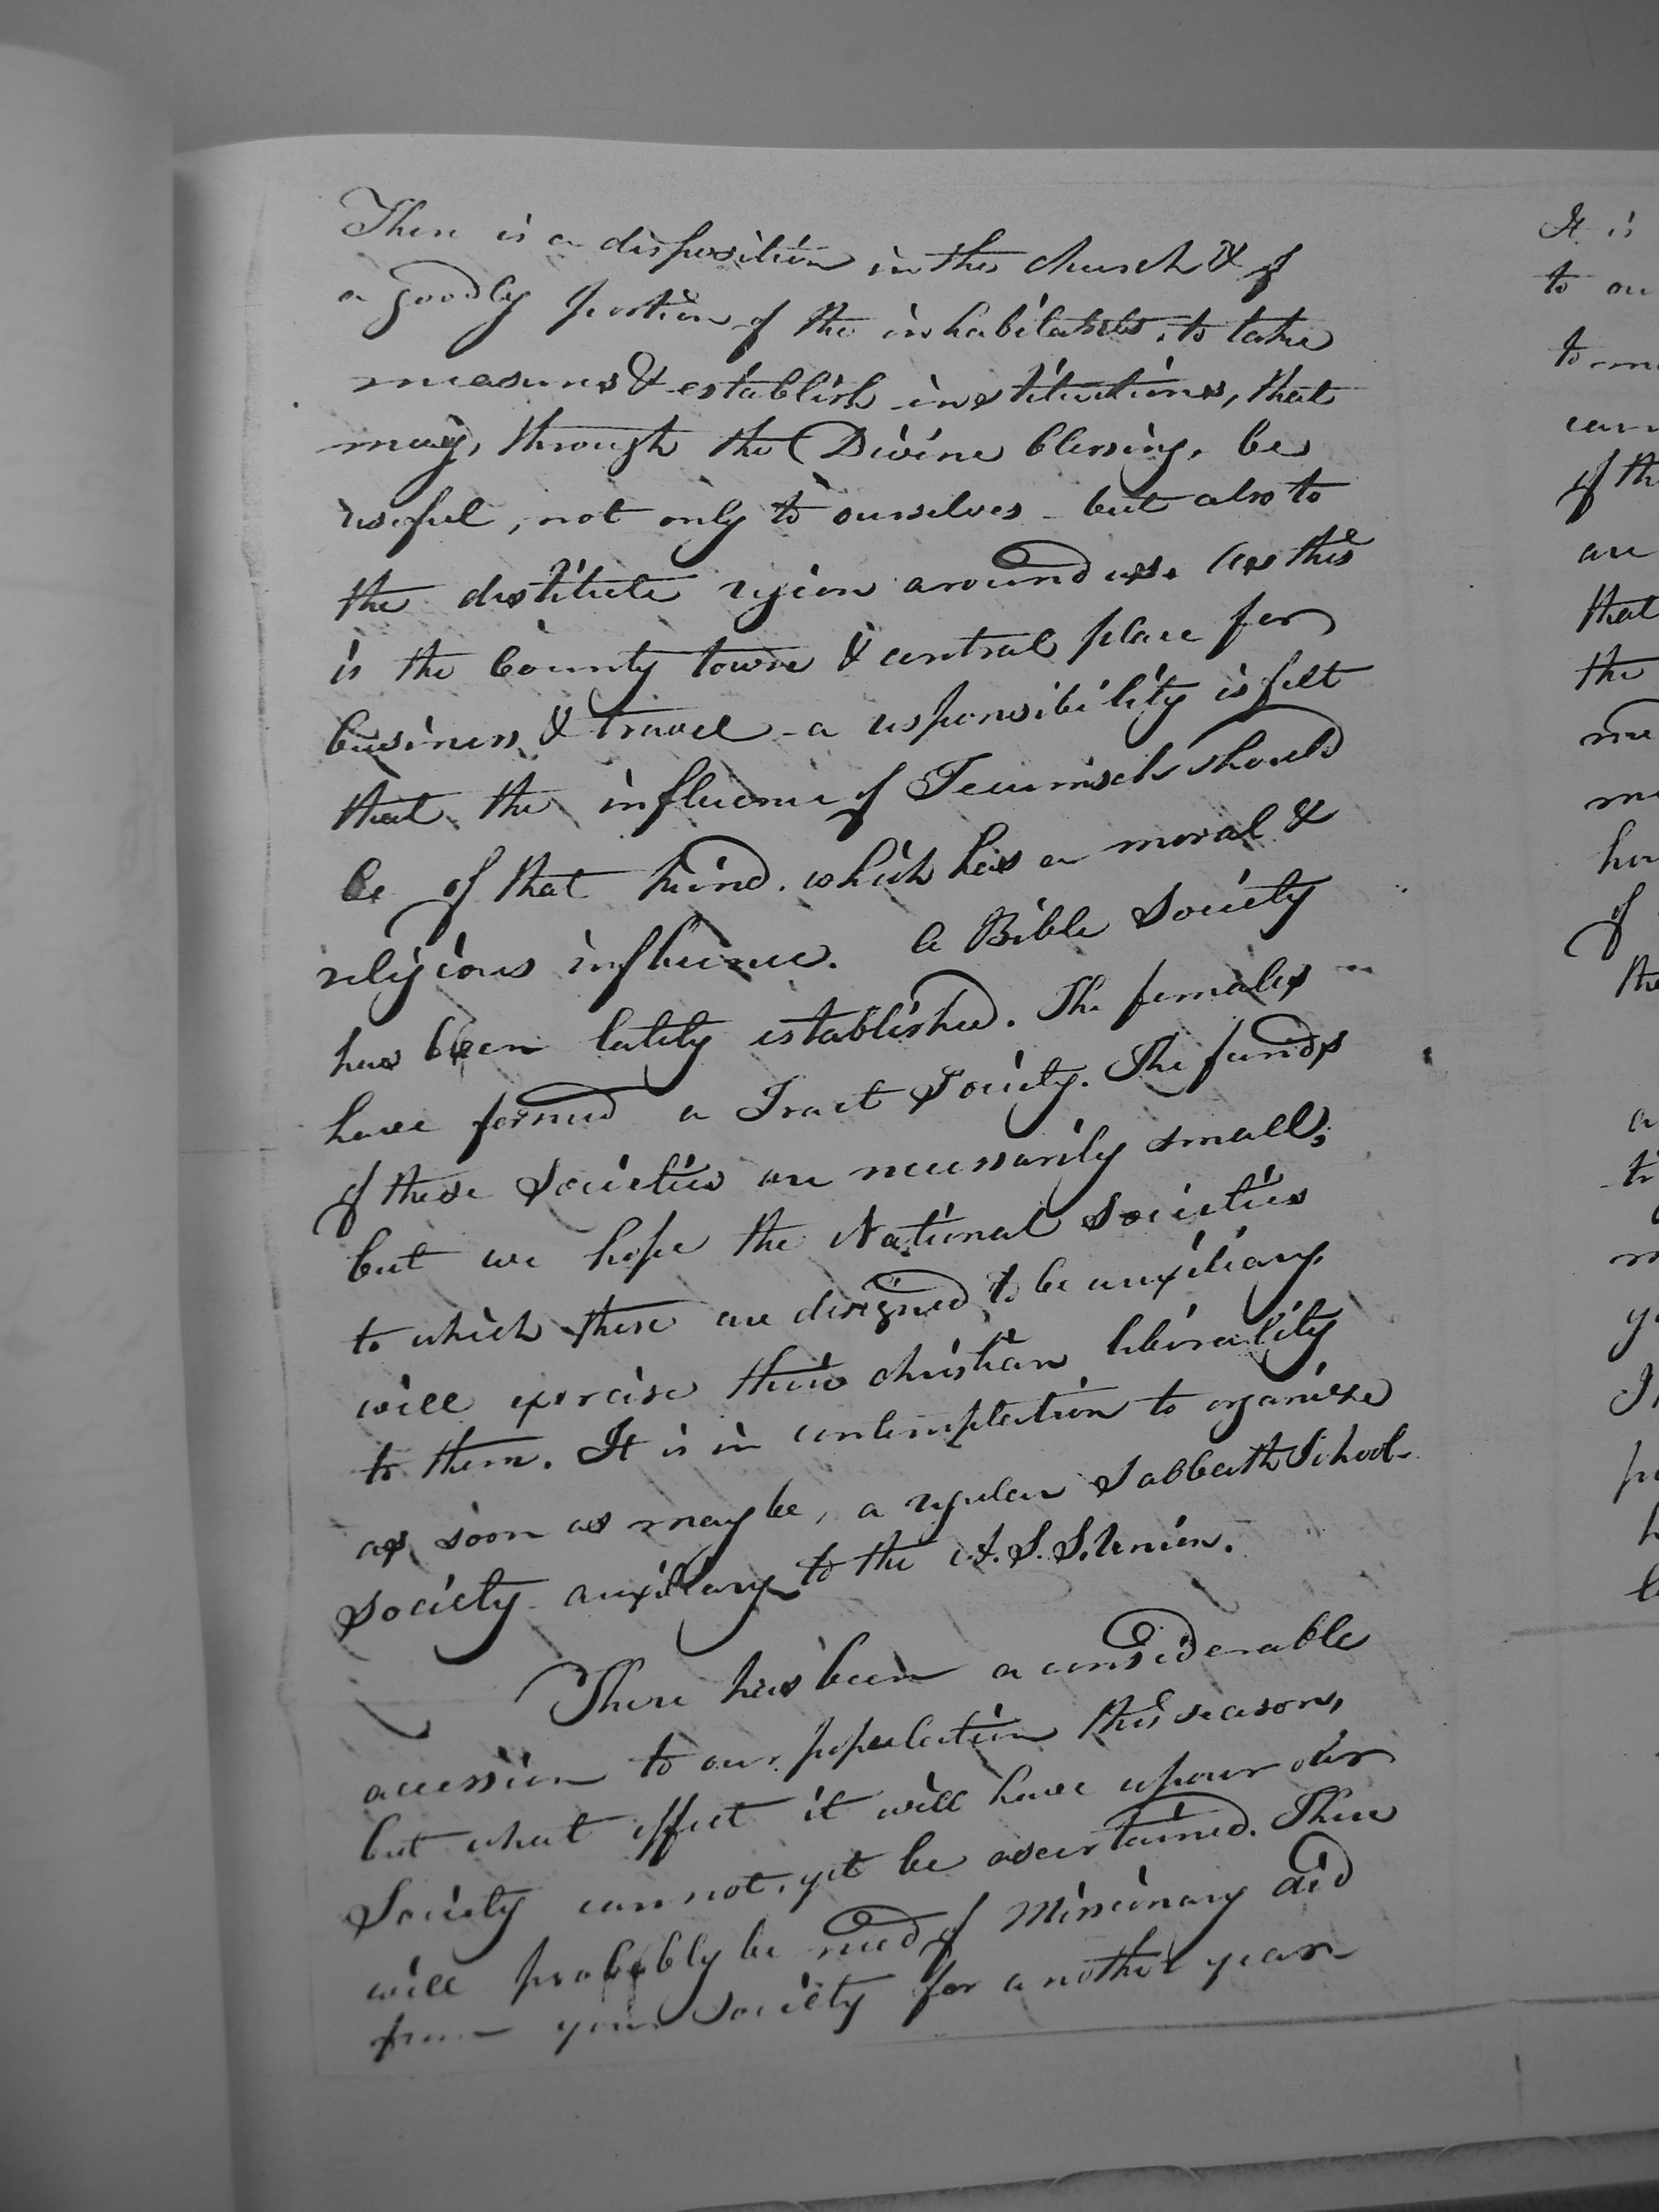 There is a disposition in this church & of
a goodly portion of the inhabitants, to take
measures & establish institutions, that
may, through the Divine blessing, be
useful, not only to ourselves - but also to
the destitute region around us. As this
is the County town & central place for
business & travel - a responsibility is felt
that the influence of Tecumseh should
be of that kind which has a moral &
religious influence. A Bible Society
has been lately established. The females
have formed a Tract Society. The funds
of these Societies are necessarily small;
but we hope the National Societies
to which these are designed to be auxiliary,
will exercise their christian liberality
to them. It is in contemplation to organize
as soon as may be, a regular Sabbath School
Society auxiliary to the A. S. S. Union.
There has been a considerable
accession to our population this season,
but what effect it will have upon our
Society can not, yet be ascertained. There
will probably be need of Missionary aid
from your Society for another year
It is
to
to
of th
are
that
the
of